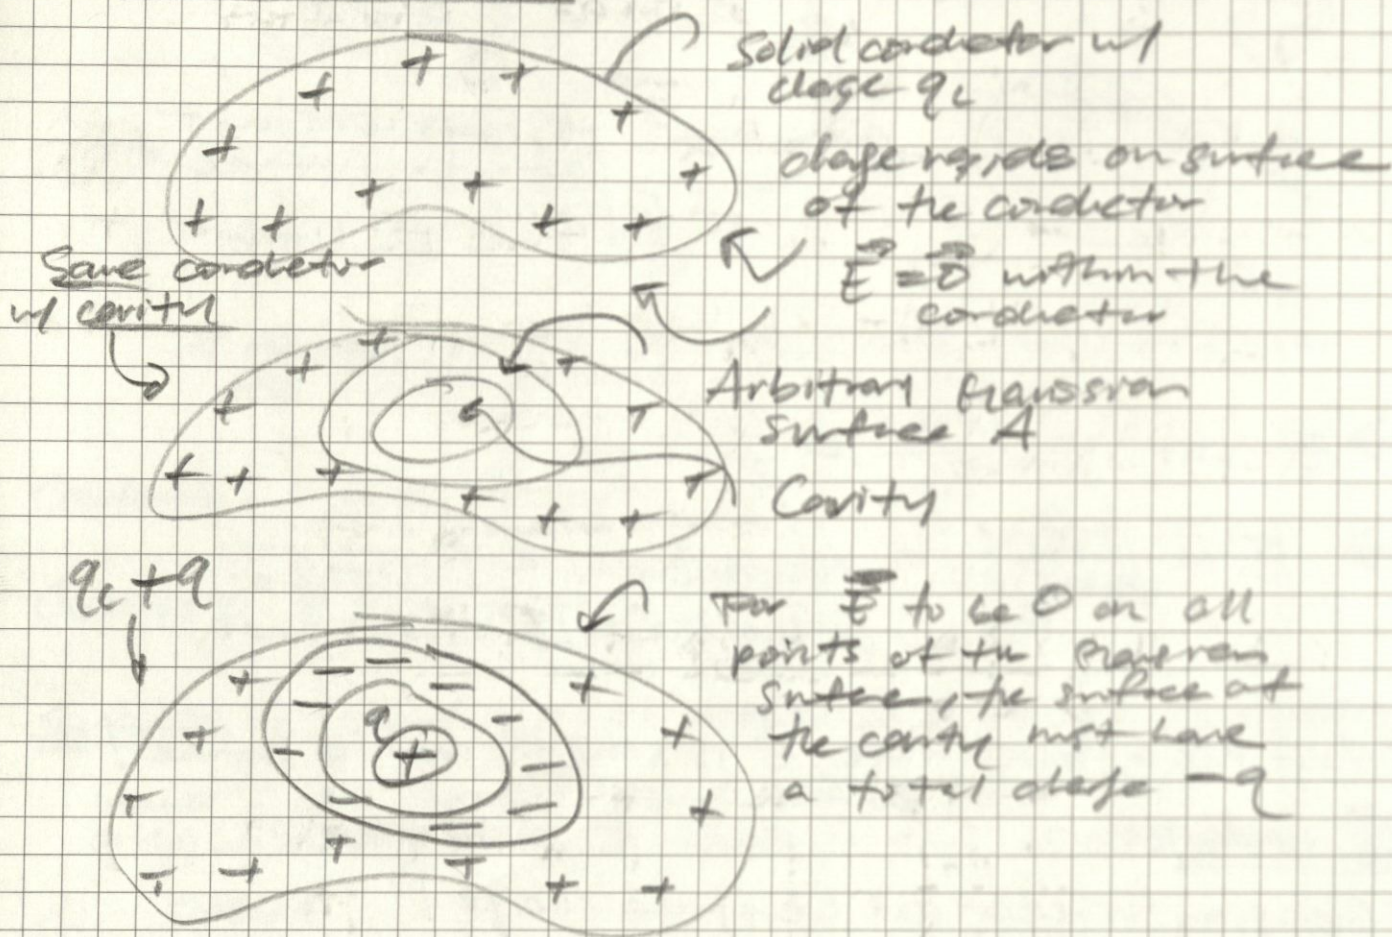 Solid conductor w/
charge qc
charge resides on surface
of the conductor
E = 0 within the
conductor
Same conductor
w/ cavity
Arbitrary Gaussian
surface A
Cavity
qc + q
For E to be 0 on all
points of the Gaussian
surface, the surface of
the cavity must have
a total charge -q
q